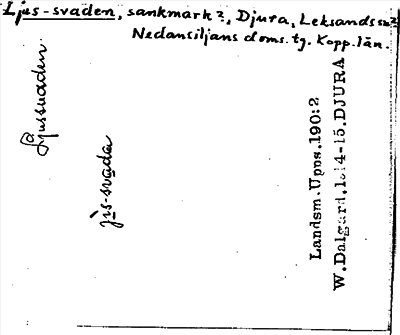 Ljus-svaden, sankmark?, Djura, Leksands sn?
Nedansiljans doms. tg. Kopp. län.
Ljussvaden
jis-svada
Landsm.Upps.190:2
W.Dalgard.1914-15.DJURA